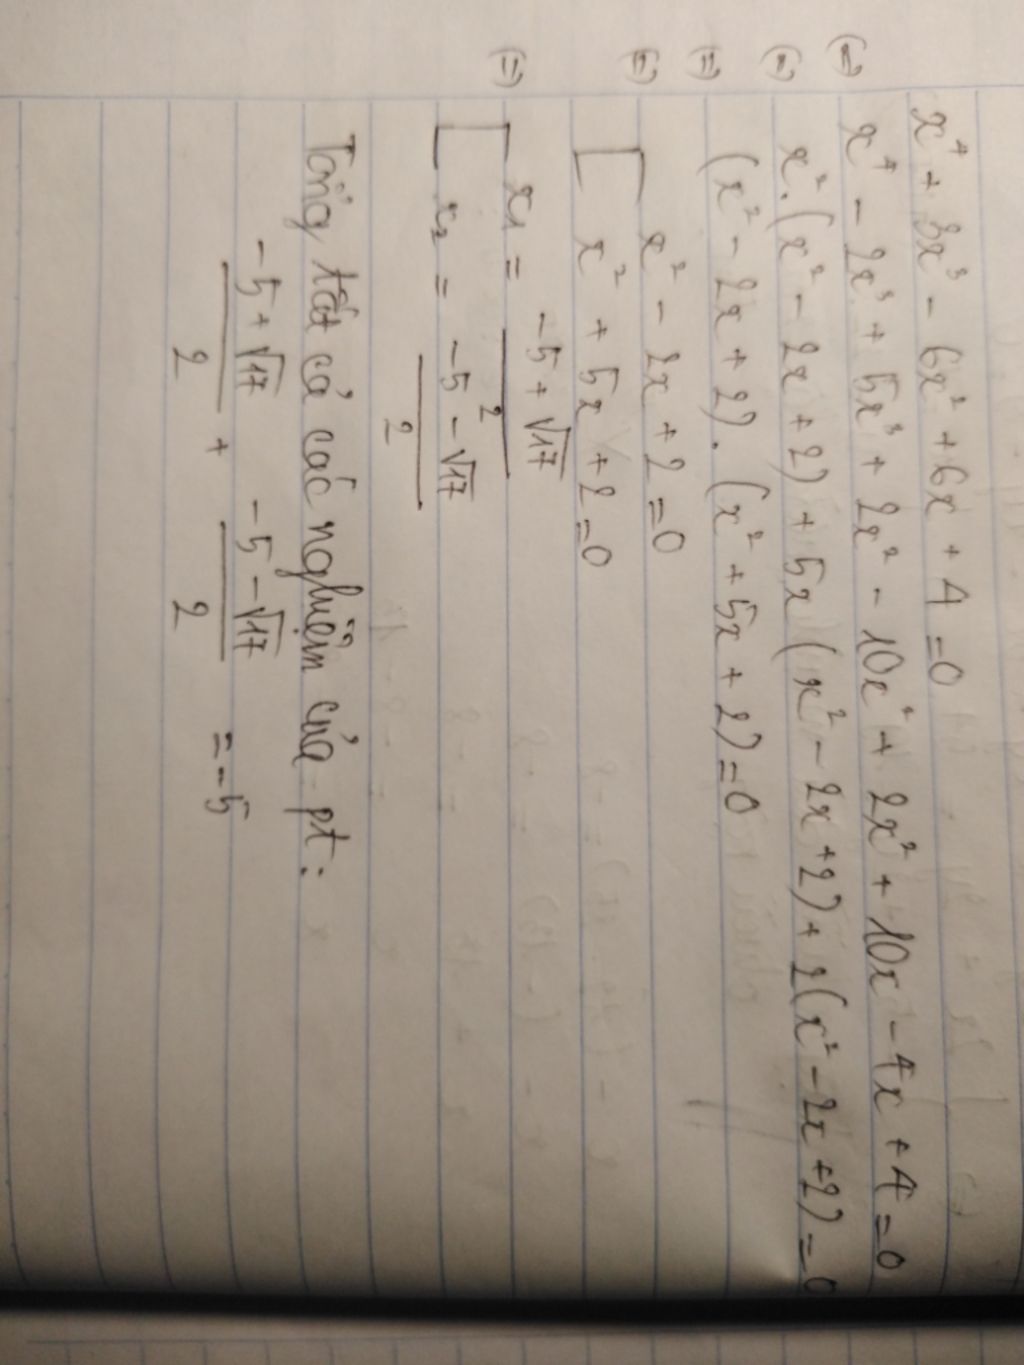 x⁴ + 3x³ - 6x² + 6x + 4 = 0
(=) x⁴ - 2x³ + 5x³ + 2x² - 10x² + 2x² + 10x - 4x + 4 = 0
(=) x².(x² - 2x + 2) + 5x (x² - 2x + 2) + 2(x² - 2x + 2) = 0
(=) (x² - 2x + 2). (x² + 5x + 2) = 0
(=) [ x² - 2x + 2 = 0
x² + 5x + 2 = 0
(=) [ x₁ = (-5 + √17)/2
x₂ = (-5 - √17)/2
Tổng tất cả các nghiệm của pt:
(-5 + √17)/2 + (-5 - √17)/2 = -5